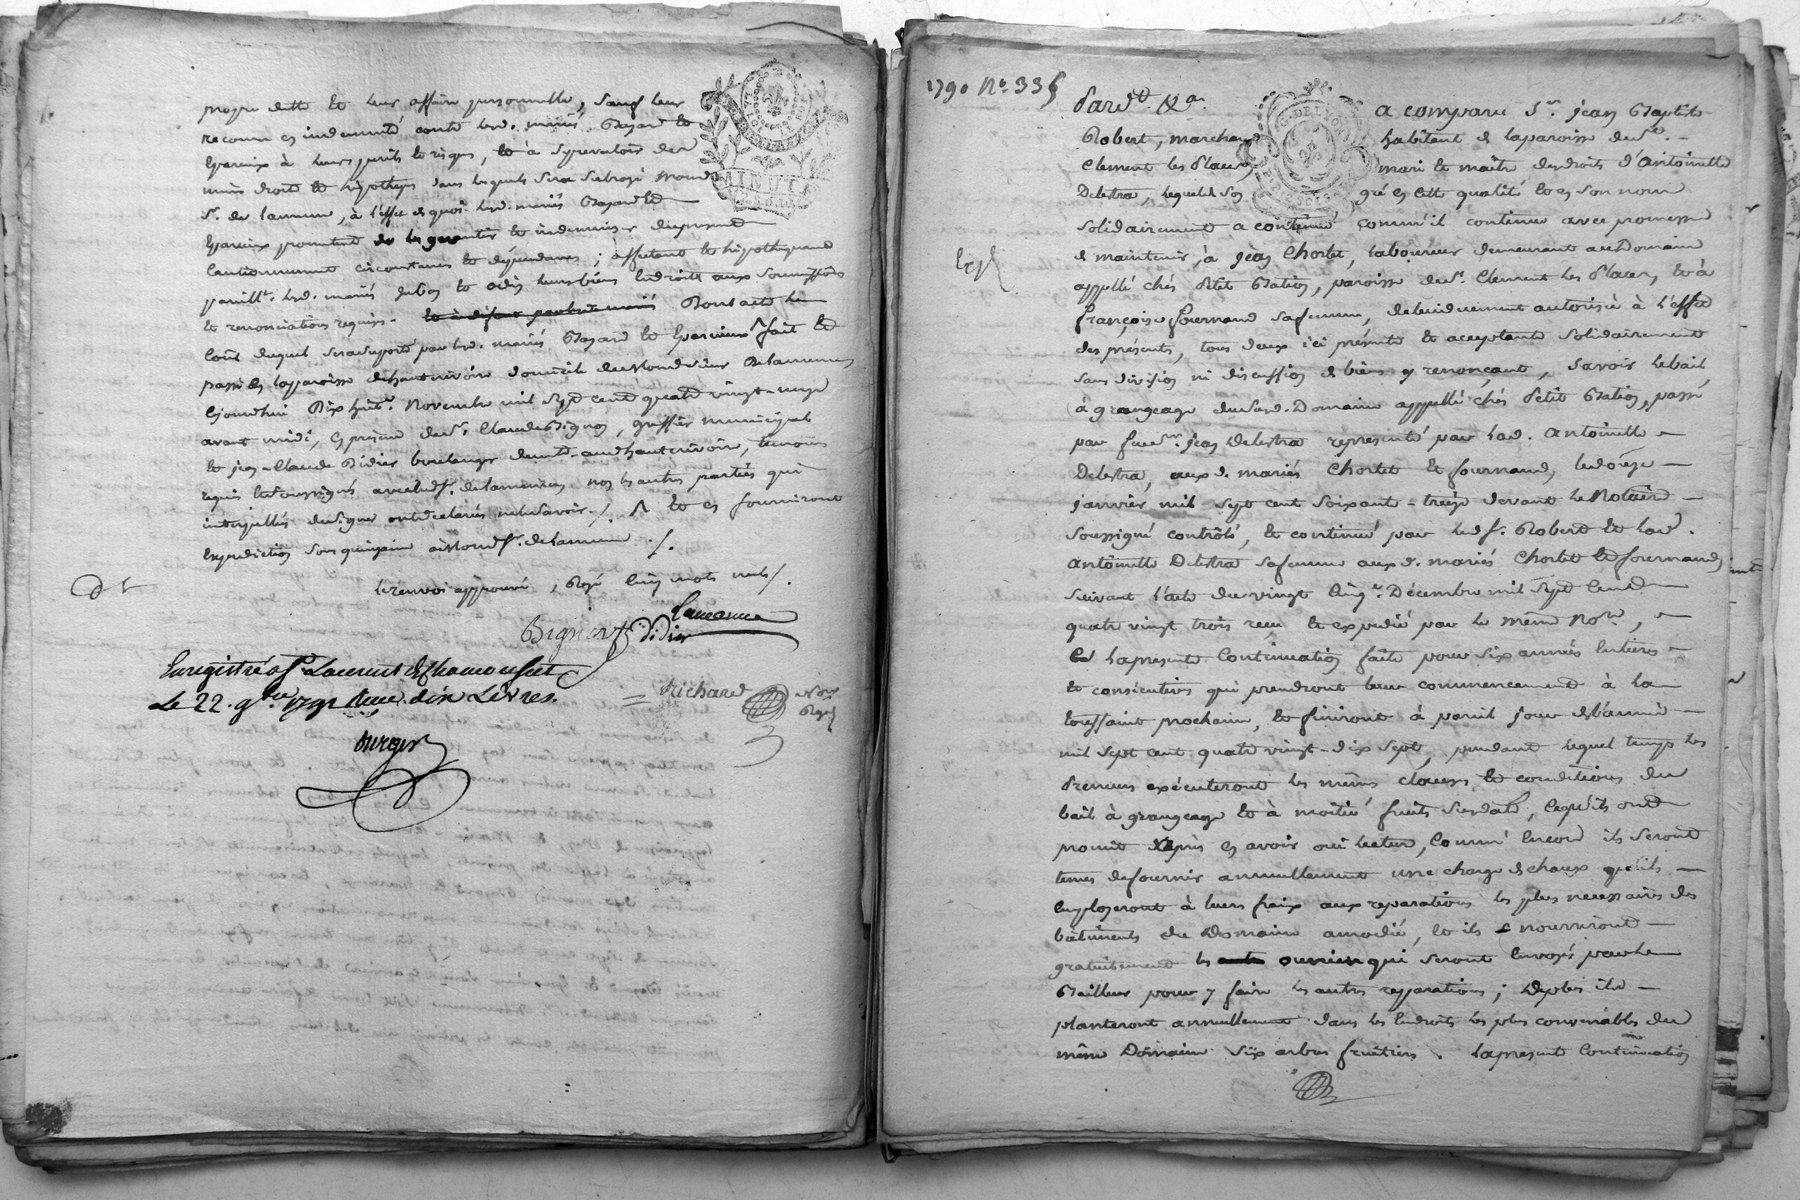 propre dette et leur affaire personnelle, sauf leur
recours en indemnité contre lesd. mariés Bayard et
à leurs périls et risques, et à se prevaloir des
mêmes droits et hypotheques dans lesquels sera subrogé
Sr. de lamure, à l'effet de quoi lesd. mariés Bayard et
promettent de les garantir et indemniser du present
Cautionnement circonstances et dépendances ; affectant et hypothequant
lesd. mariés leurs biens et droits aux soumissions
et renonciations requises. et à défaut par lesd. mariés Dont acte
Coût duquel sera supporté par lesd. mariés Bayard et fait et
passé en la paroisse de hauterivoire domicile de
Cejourd'hui Dix huit Novembre mil sept cent quatre vingt-onze
avant midi, en présence de Sr. Claude Bignon, greffier municipal
et jean-Claude Didier boulanger aud. hauterivoire, temoins
requis et soussignés avec led. Sr. non les autres parties qui
interpellées de signer ont déclaré ne le savoir ./. Λ et en fourniront
Expedition sous quinzaine à Mond. Sr. de lamure ./.
le renvoi approuvé, Rayé Cinq mots nuls /.
Lamure
Bignon Didier
Enregistré à St. Laurent de Chamousset
Le 22. 9bre 1791 Reçu dix Livres.
Richard Nore
Royal
Durger
1790 No. 335
Pardt. &a. A comparu Sr. jean Baptiste
Robert, marchand habitant de la paroisse de St. -
Clement les Places mari et maître des droits d'Antoinette
Delestra, lequel de son gré en cette qualité et en son nom
Solidairement a continué comm'il continue avec promesse
de maintenir, à jean Chortet, laboureur demeurant au Domaine
appellé chés Petit Station, paroisse de St. Clement les Places, et à
françoise fournand sa femme, de lui duement autorisée à l'effet
des présentes, tous deux ici présents et acceptants solidairement
sans division ni discussion de biens y renonçant, savoir le bail
à grangeage dud. Domaine appellé chés Petit Station, passé
par feu Sr. jean Delestra representé par lad. Antoinette -
Delestra, aux d. mariés Chortet et fournand, le douze -
janvier mil sept cent soixante-treize devant le Notaire -
soussigné contrôlé, et continué par led. Sr. Robert et lad.
Antoinette Delestra sa femme aux d. mariés Chortet et fournand
suivant l'acte du vingt Cinq Décembre mil sept Cent
quatre vingt trois reçu et expedié par le même Nore, -
la presente Continuation faite pour six années Entieres -
et consécutives qui prendront leur commencement à la
toussaint prochaine, et finiront à pareil jour de l'année -
mil sept cent quatre vingt-dix sept, pendant lequel temps les
Preneurs exécuteront les mêmes clauses et conditions du
bail à grangeage et à moitié fruits susdaté, ce qu'ils ont
promis après en avoir oui lecture, Comm' Encore ils seront
tenus de fournir annuellement une charge de chaux qu'ils -
Employeront à leurs fraix aux reparations les plus necessaires des
bâtiments du Domaine amodié, et ils nourriront -
gratuitement les ouvriers qui seront Envoyés par le
Bailleur pour y faire les autres reparations ; de plus ils -
planteront annuellement dans les Endroits les plus convenables du
même Domaine six arbres fruitiers. la présente Continuation